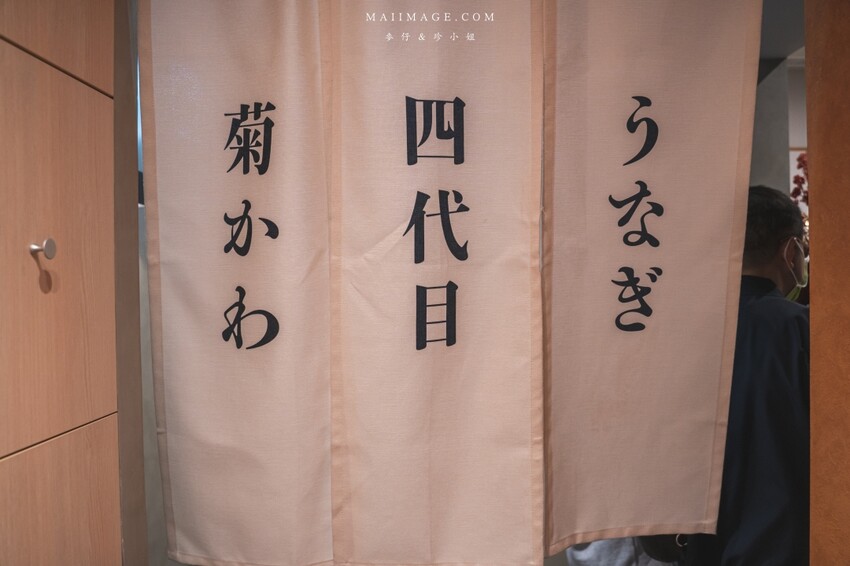 MAIIMAGE.COM
麥仔&珍小妞
うなぎ
四代目
菊かわ